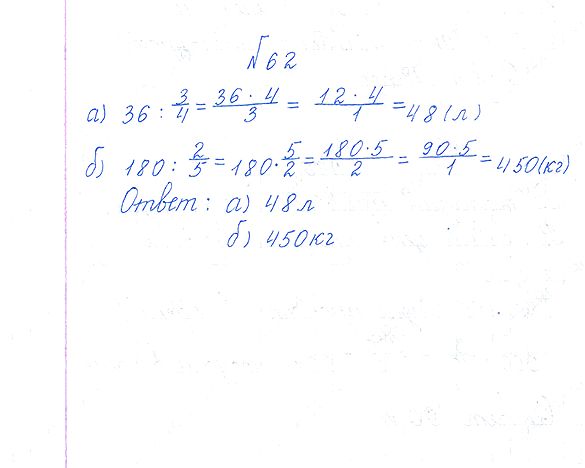 №62
а) 36 : 3/4 = 36 · 4/3 = 12 · 4/1 = 48 (л)
б) 180 : 2/5 = 180 · 5/2 = 180 · 5/2 = 90 · 5/1 = 450 (кг)
Ответ : а) 48 л
б) 450 кг